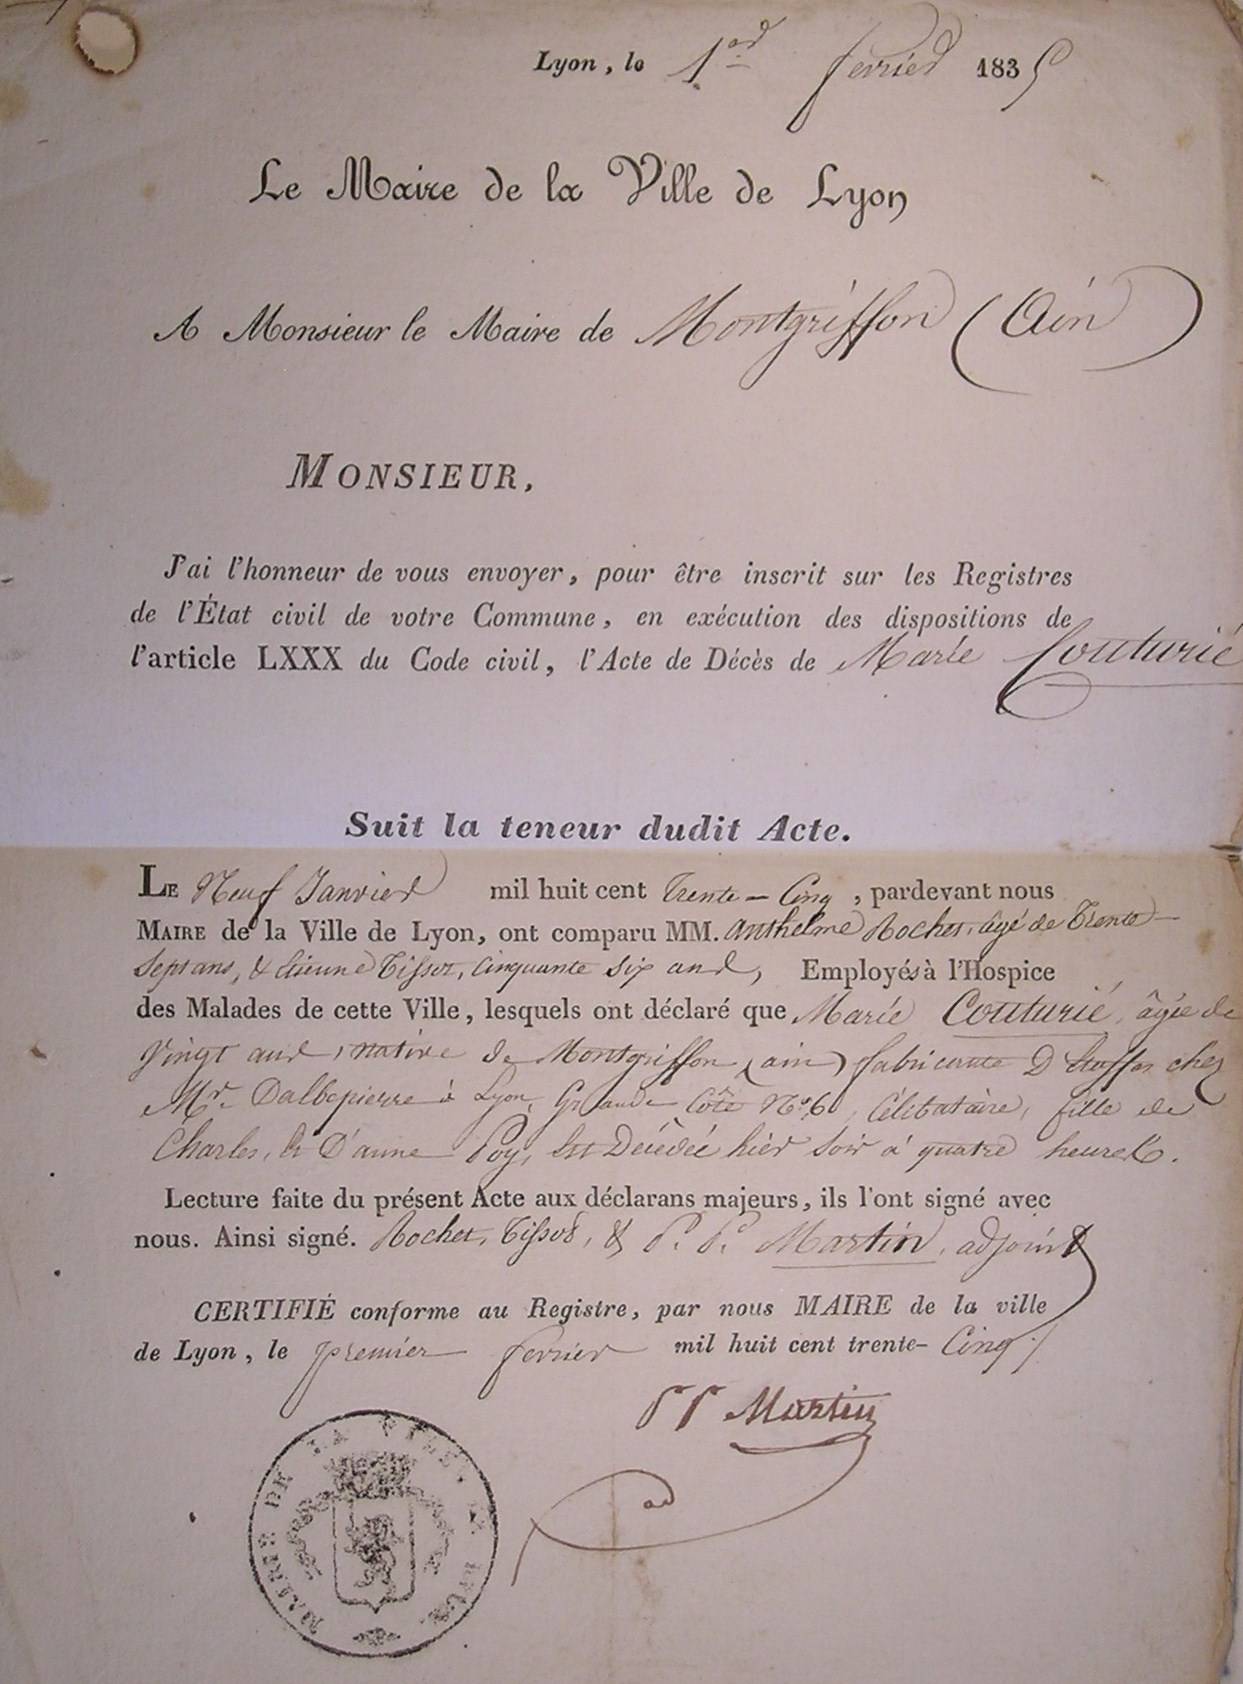 Lyon, le 1er fevrier 1835
Le Maire de la Ville de Lyon
A Monsieur le Maire de Montgriffon (Ain)
MONSIEUR,
J'ai l'honneur de vous envoyer, pour être inscrit sur les Registres
de l'État civil de votre Commune, en exécution des dispositions de
l'article LXXX du Code civil, l'Acte de Décès de Marie Couturié
Suit la teneur dudit Acte.
LE Neuf Janvier mil huit cent Trente-Cinq, pardevant nous
MAIRE de la Ville de Lyon, ont comparu MM. Anthelme Rochet, âgé de Trente-
Sept ans, & Etienne Tissot, Cinquante six ans, Employés à l'Hospice
des Malades de cette Ville, lesquels ont déclaré que Marie Couturié, âgée de
Vingt ans, native de Montgriffon (ain) fabricante D'Etoffes chez
Mr. Dalbepierre à Lyon, Grande Côte No. 60, Célibataire, fille de
Charles, & D'anne Poy, Est Décédée hier soir à quatre heures.
Lecture faite du présent Acte aux déclarans majeurs, ils l'ont signé avec
nous. Ainsi signé. Rochet, Tissot, & P. P. Martin, adjoint
CERTIFIÉ conforme au Registre, par nous MAIRE de la ville
de Lyon, le premier fevrier mil huit cent trente-Cinq ./
PP Martin
ad
MAIRIE DE LA VILLE DE LYON